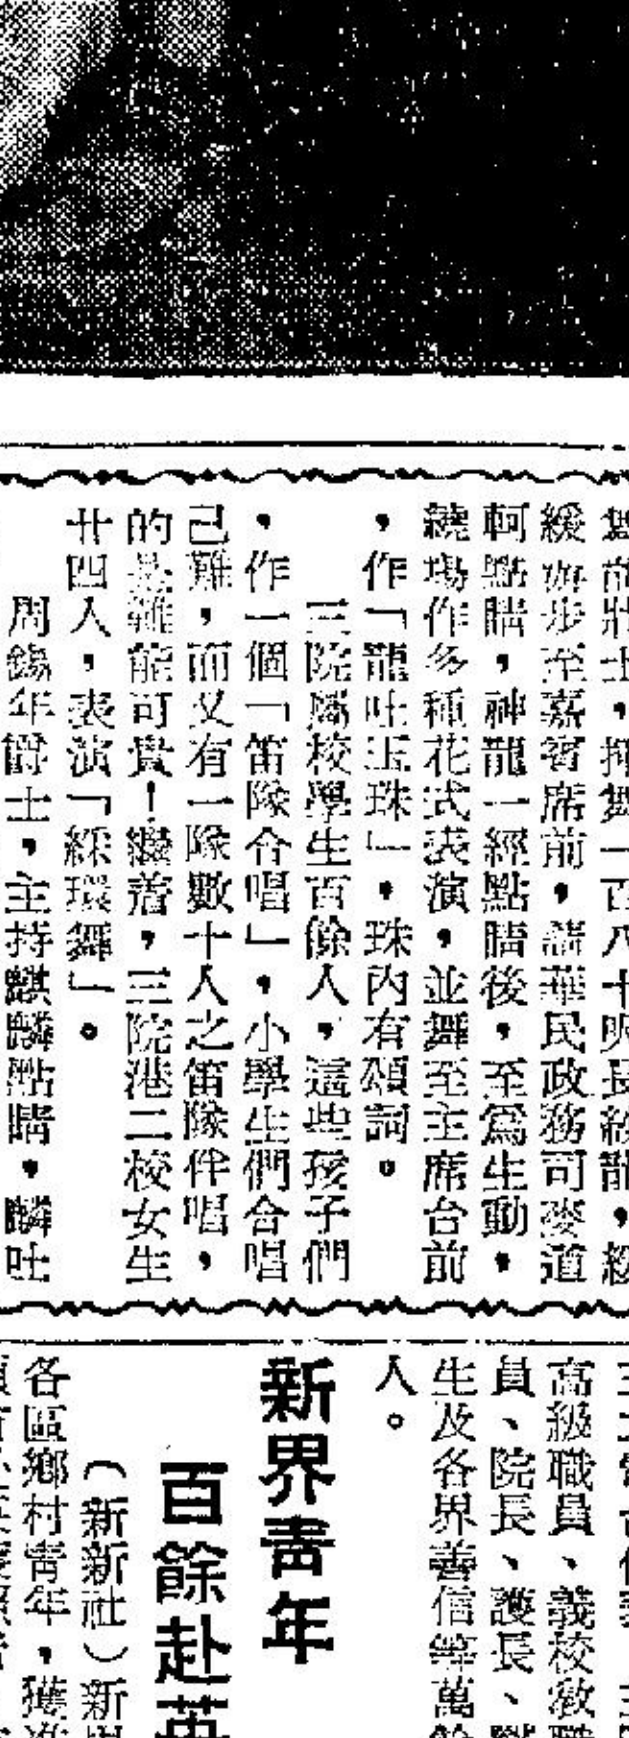 舞前壯士，揮舞一百八十呎長紋龍，緩
緩舞步至嘉賓席前，請華民政務司麥道
軻點睛，神龍一經點睛後，至爲生動，
繞場作多種花式表演，並舞至主席台前
，作「龍吐玉珠」，珠內有頌詞。
三院屬校學生百餘人，這些孩子們
，作一個「笛隊合唱」，小學生們合唱
已難，而又有一隊數十人之笛隊伴唱，
的是難能可貴！繼着，三院港二校女生
廿四人，表演「綵環舞」。
周錫年爵士，主持麒麟點睛，麟吐
高級職員、義校教職
員、院長、護長、
生及各界善信等萬餘
人。
新界青年
百餘赴英
（新新社）新界
各區鄉村青年，獲准